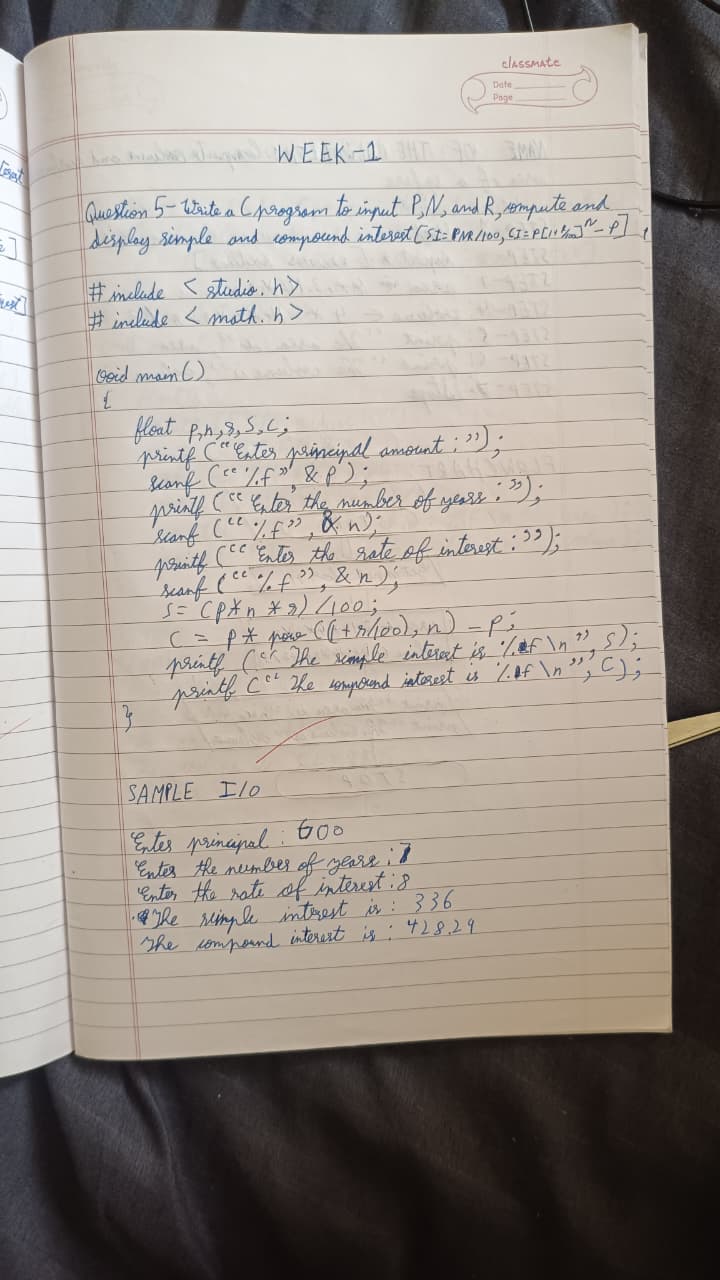 classmate
Date
Page
WEEK-1
Question 5- Write a C program to input P,N, and R, compute and
display simple and compound interest [SI = PNR/100, CI = P[1+r/100]^N - P]
# include < studio.h>
# include < math.h>
void main()
{
float p,n,r,S,C;
printf (“Enter principal amount :”);
scanf (“%f”, & p);
printf (“Enter the number of years :”);
scanf (“%f”, & n);
printf (“Enter the rate of interest :”);
scanf (“%f”, & r);
S = (p*n*r)/100;
C = p* pow ((1+r/100), n) - p;
printf (“The simple interest is %.f \n”, S);
printf (“The compound interest is %.f \n”, C);
}
SAMPLE I/O
Enter principal : 600
Enter the number of years : 7
Enter the rate of interest : 8
The simple interest is : 336
The compound interest is : 428.29